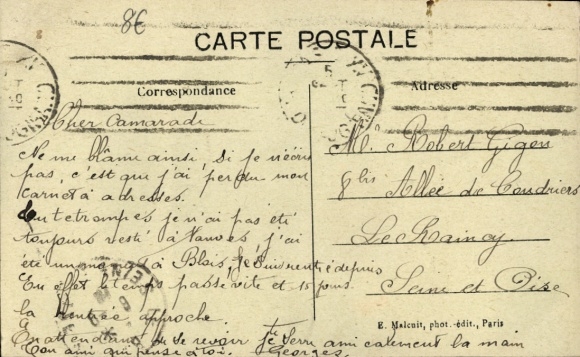 8€
CARTE POSTALE
Correspondance
Adresse
Cher Camarade
Ne me blâme ainsi, si je n'écris
pas, c'est que j'ai perdu mon
carnet à adresses.
Tu te trompes je n'ai pas été
toujours resté à Vanves, j'ai
été un à Blois, je suis rentré depuis
En effet le temps passe vite et 15 jours
la Rentrée approche
En attendant de se revoir je te serre amicalement la main
Ton ami qui pense à toi. Georges
M. Robert Gigon
8 bis Allée de Coudriers
Le Raincy
Seine et Oise
E. Malcuit, phot.-édit., Paris